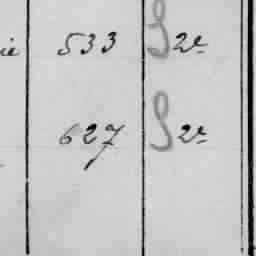 ie 533 2e
627 2e